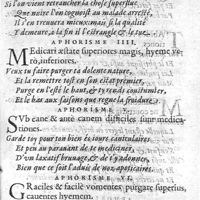 Si l'on vient retrancher la chose superflue
Que nature l'on cognoist au malade arresté,
Il s'en trouvera mieux: mais si la qualité
Y demeure, à la fin il s'estrangle & se tue.
APHORISME IIII.
Medicari æstate superiores magis, hyeme ve
rò, inferiores.
Veux tu faire purger la dolente nature,
Et la remettre tost en son estat premier,
Purge en l'esté le haut, & pren coustumier,
Et le bas aux saisons que regne la froidure.
APHORISME V.
Sub cane & ante canem difficiles sunt medica
tiones.
Garde toy pour ton bien és iours caniculaires
Et peu au paravant de te medeciner,
D'un laxatif bruuage, & de t'y adonner,
Bien que ce fust l'aduis de nos apoticaires.
APHORISME VI.
Graciles & facilè vomentes purgare superius,
cauentes hyemem.